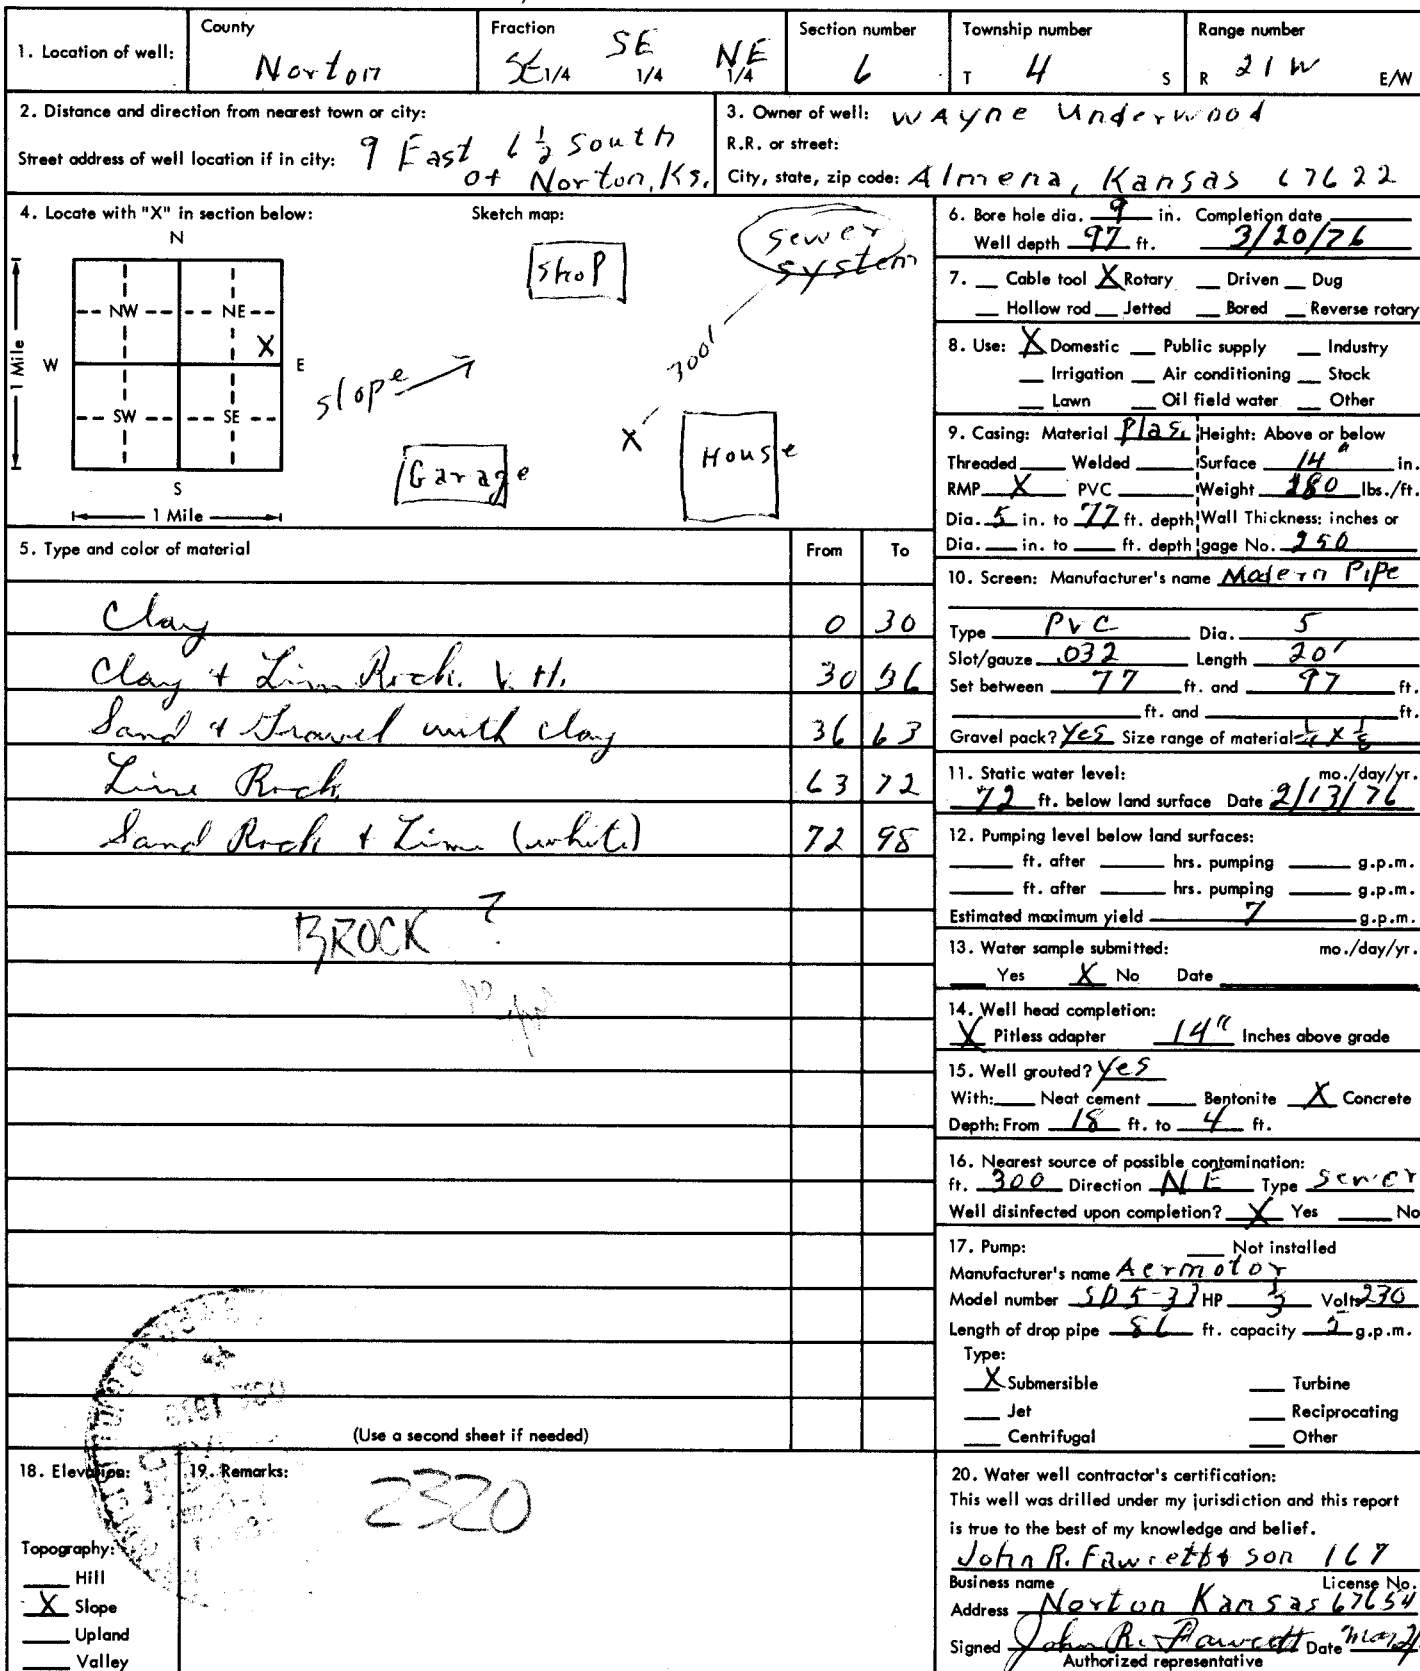 1. Location of well:
County
Norton
Fraction
SE 1/4 SE 1/4 NE 1/4
Section number
6
Township number
T 4 S
Range number
R 21 W E/W
2. Distance and direction from nearest town or city:
Street address of well location if in city: 9 East 6 1/2 South
of Norton, Ks.
3. Owner of well: Wayne Underwood
R.R. or street:
City, state, zip code: Almena, Kansas 67622
4. Locate with "X" in section below:
N
NW NE
X
W E
SW SE
S
1 Mile
1 Mile
Sketch map:
Shop
Sewer
system
300'
slope
X
House
Garage
5. Type and color of material From To
Clay 0 30
Clay + Lim Rock. V. H. 30 36
Sand & Gravel with clay 36 63
Lime Rock 63 72
Sand Rock + Lime (white) 72 98
BROCK ?
(Use a second sheet if needed)
6. Bore hole dia. 9 in. Completion date
Well depth 97 ft. 3/20/76
7. Cable tool X Rotary Driven Dug
Hollow rod Jetted Bored Reverse rotary
8. Use: X Domestic Public supply Industry
Irrigation Air conditioning Stock
Lawn Oil field water Other
9. Casing: Material Plas. Height: Above or below
Threaded Welded Surface 14" in.
RMP X PVC Weight 280 lbs./ft.
Dia. 5 in. to 77 ft. depth Wall Thickness: inches or
Dia. in. to ft. depth gage No. 250
10. Screen: Manufacturer's name Modern Pipe
Type PVC Dia. 5
Slot/gauze .032 Length 20'
Set between 77 ft. and 97 ft.
ft. and ft.
Gravel pack? Yes Size range of material 1/4 x 1/8
11. Static water level: mo./day/yr.
72 ft. below land surface Date 2/13/76
12. Pumping level below land surfaces:
ft. after hrs. pumping g.p.m.
ft. after hrs. pumping g.p.m.
Estimated maximum yield 7 g.p.m.
13. Water sample submitted: mo./day/yr.
Yes X No Date
14. Well head completion:
X Pitless adapter 14" Inches above grade
15. Well grouted? Yes
With: Neat cement Bentonite X Concrete
Depth: From 18 ft. to 4 ft.
16. Nearest source of possible contamination:
ft. 300 Direction NE Type Sewer
Well disinfected upon completion? X Yes No
17. Pump: Not installed
Manufacturer's name Aermotor
Model number SD5-33 HP 1/3 Volts 230
Length of drop pipe 86 ft. capacity 5 g.p.m.
Type:
X Submersible Turbine
Jet Reciprocating
Centrifugal Other
18. Elevation:
Topography:
Hill
X Slope
Upland
Valley
19. Remarks:
2320
20. Water well contractor's certification:
This well was drilled under my jurisdiction and this report
is true to the best of my knowledge and belief.
John R. Fawcett & son 167
Business name License No.
Address Norton Kansas 67654
Signed John R. Fawcett Date
Authorized representative